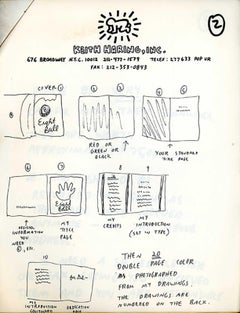 2
KEITH HARING, INC.
676 BROADWAY N.Y.C. 10012 212-477-1579 TELEX: 277633 POP UR
FAX: 212-353-0843
COVER
Eight Ball
Eight Ball
RED OR GREEN OR BLACK
YOUR STANDARD TITLE PAGE
NORMAL INFORMATION YOU NEED ©, ETC.
MY TITLE PAGE
MY CREDITS
MY INTRODUCTION (SET IN TYPE)
10
FOR
MY INTRODUCTION CONTINUED
DEDICATION PAGE
THEN 20 DOUBLE PAGE COLOR
AS PHOTOGRAPHED
FROM MY DRAWINGS.
THE DRAWINGS ARE
NUMBERED ON THE BACK.